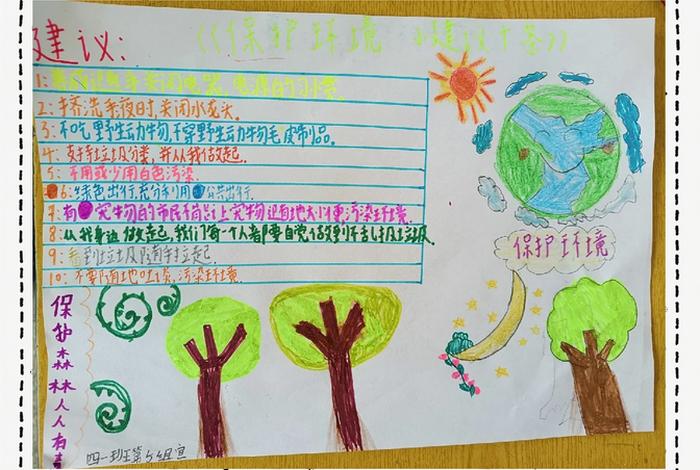 《保护环境 小建议十条》
建议:
1:养成随手关闭电器,电源的习惯。
2:挤洗手液时,关闭水龙头。
3:不吃野生动物,不穿野生动物毛皮制品。
4:支持垃圾分类,并从我做起。
5:不用或少用白色污染。
6:绿色出行,充分利用公共出行。
7:有宠物的市民不简让宠物随地大小便污染环境
8:从我身边做起,我们每个人都要自觉做到不乱扔垃圾
9:看到垃圾随手捡起
10:不要随地吐痰,污染环境
保护环境
保护森林人人有责
四一班第5组宣